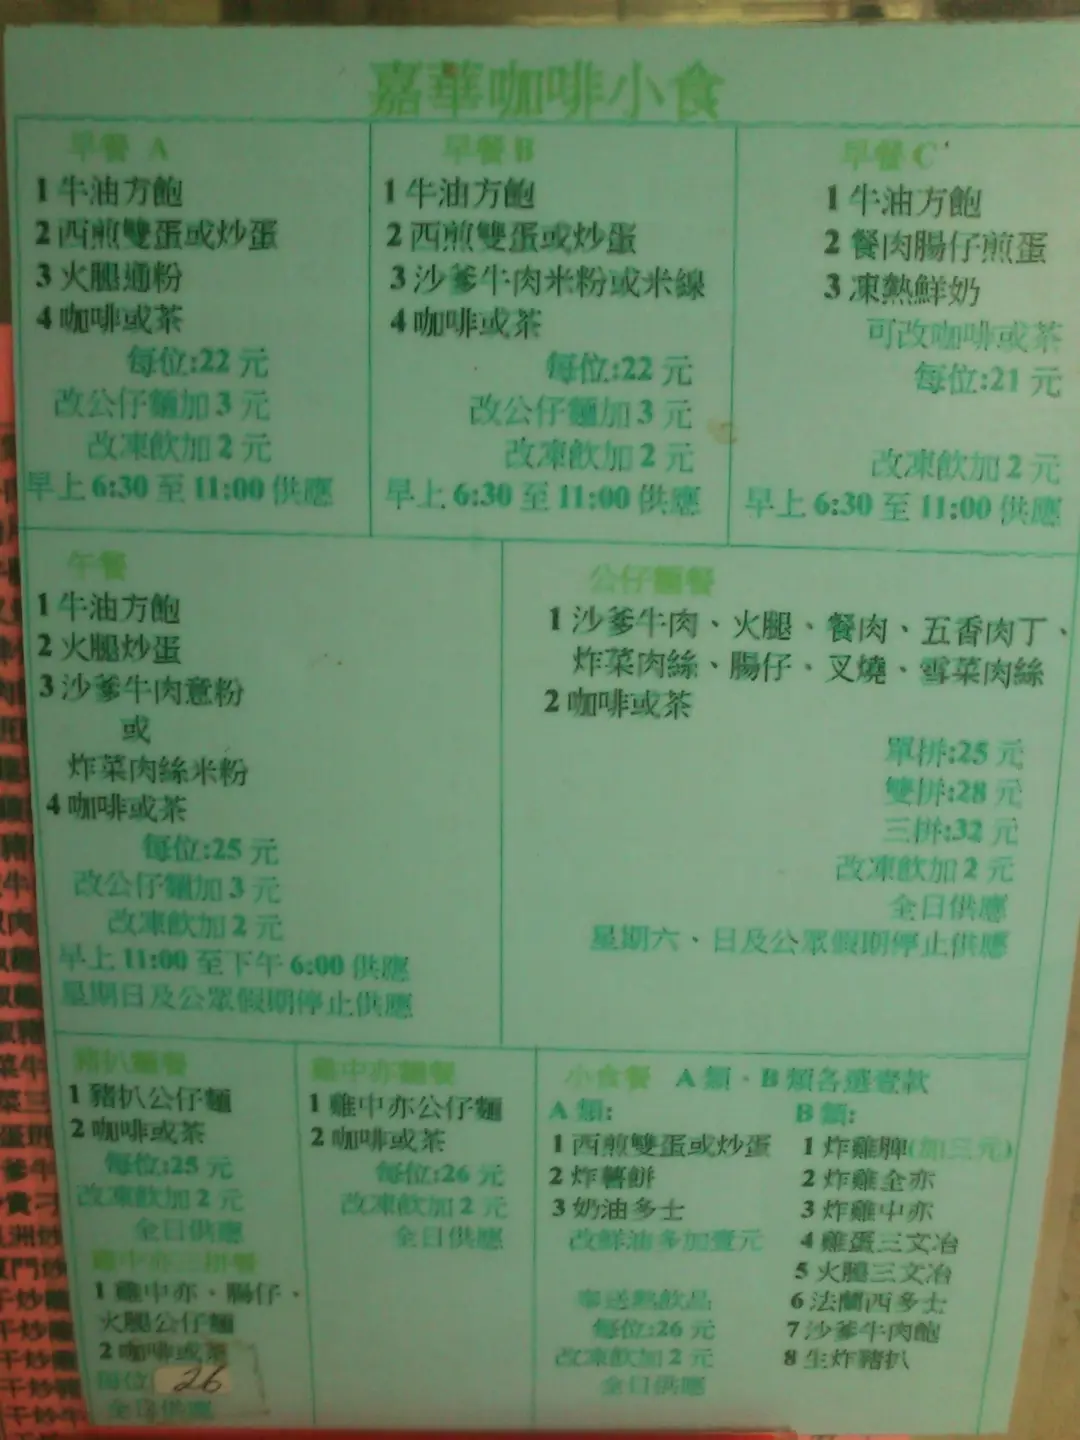 嘉華咖啡小食
早餐 A
1 牛油方飽
2 西煎雙蛋或炒蛋
3 火腿通粉
4 咖啡或茶
每位:22 元
改公仔麵加 3 元
改凍飲加 2 元
早上 6:30 至 11:00 供應
早餐 B
1 牛油方飽
2 西煎雙蛋或炒蛋
3 沙爹牛肉米粉或米線
4 咖啡或茶
每位:22 元
改公仔麵加 3 元
改凍飲加 2 元
早上 6:30 至 11:00 供應
早餐 C
1 牛油方飽
2 餐肉腸仔煎蛋
3 凍熱鮮奶
可改咖啡或茶
每位:21 元
改凍飲加 2 元
早上 6:30 至 11:00 供應
午餐
1 牛油方飽
2 火腿炒蛋
3 沙爹牛肉意粉
或
炸菜肉絲米粉
4 咖啡或茶
每位:25 元
改公仔麵加 3 元
改凍飲加 2 元
早上 11:00 至下午 6:00 供應
星期日及公眾假期停止供應
公仔麵餐
1 沙爹牛肉、火腿、餐肉、五香肉丁、
炸菜肉絲、腸仔、叉燒、雪菜肉絲
2 咖啡或茶
單拼:25 元
雙拼:28 元
三拼:32 元
改凍飲加 2 元
全日供應
星期六、日及公眾假期停止供應
豬扒麵餐
1 豬扒公仔麵
2 咖啡或茶
每位:25 元
改凍飲加 2 元
全日供應
雞中亦三拼餐
1 雞中亦、腸仔、
火腿公仔麵
2 咖啡或茶
每位 26
全日供應
雞中亦麵餐
1 雞中亦公仔麵
2 咖啡或茶
每位:26 元
改凍飲加 2 元
全日供應
小食餐 A 類、B 類各選壹款
A 類:
1 西煎雙蛋或炒蛋
2 炸薯餅
3 奶油多士
改鮮油多加壹元
奉送熱飲品
每位:26 元
改凍飲加 2 元
全日供應
B 類:
1 炸雞脾(加三元)
2 炸雞全亦
3 炸雞中亦
4 雞蛋三文冶
5 火腿三文冶
6 法蘭西多士
7 沙爹牛肉飽
8 生炸豬扒